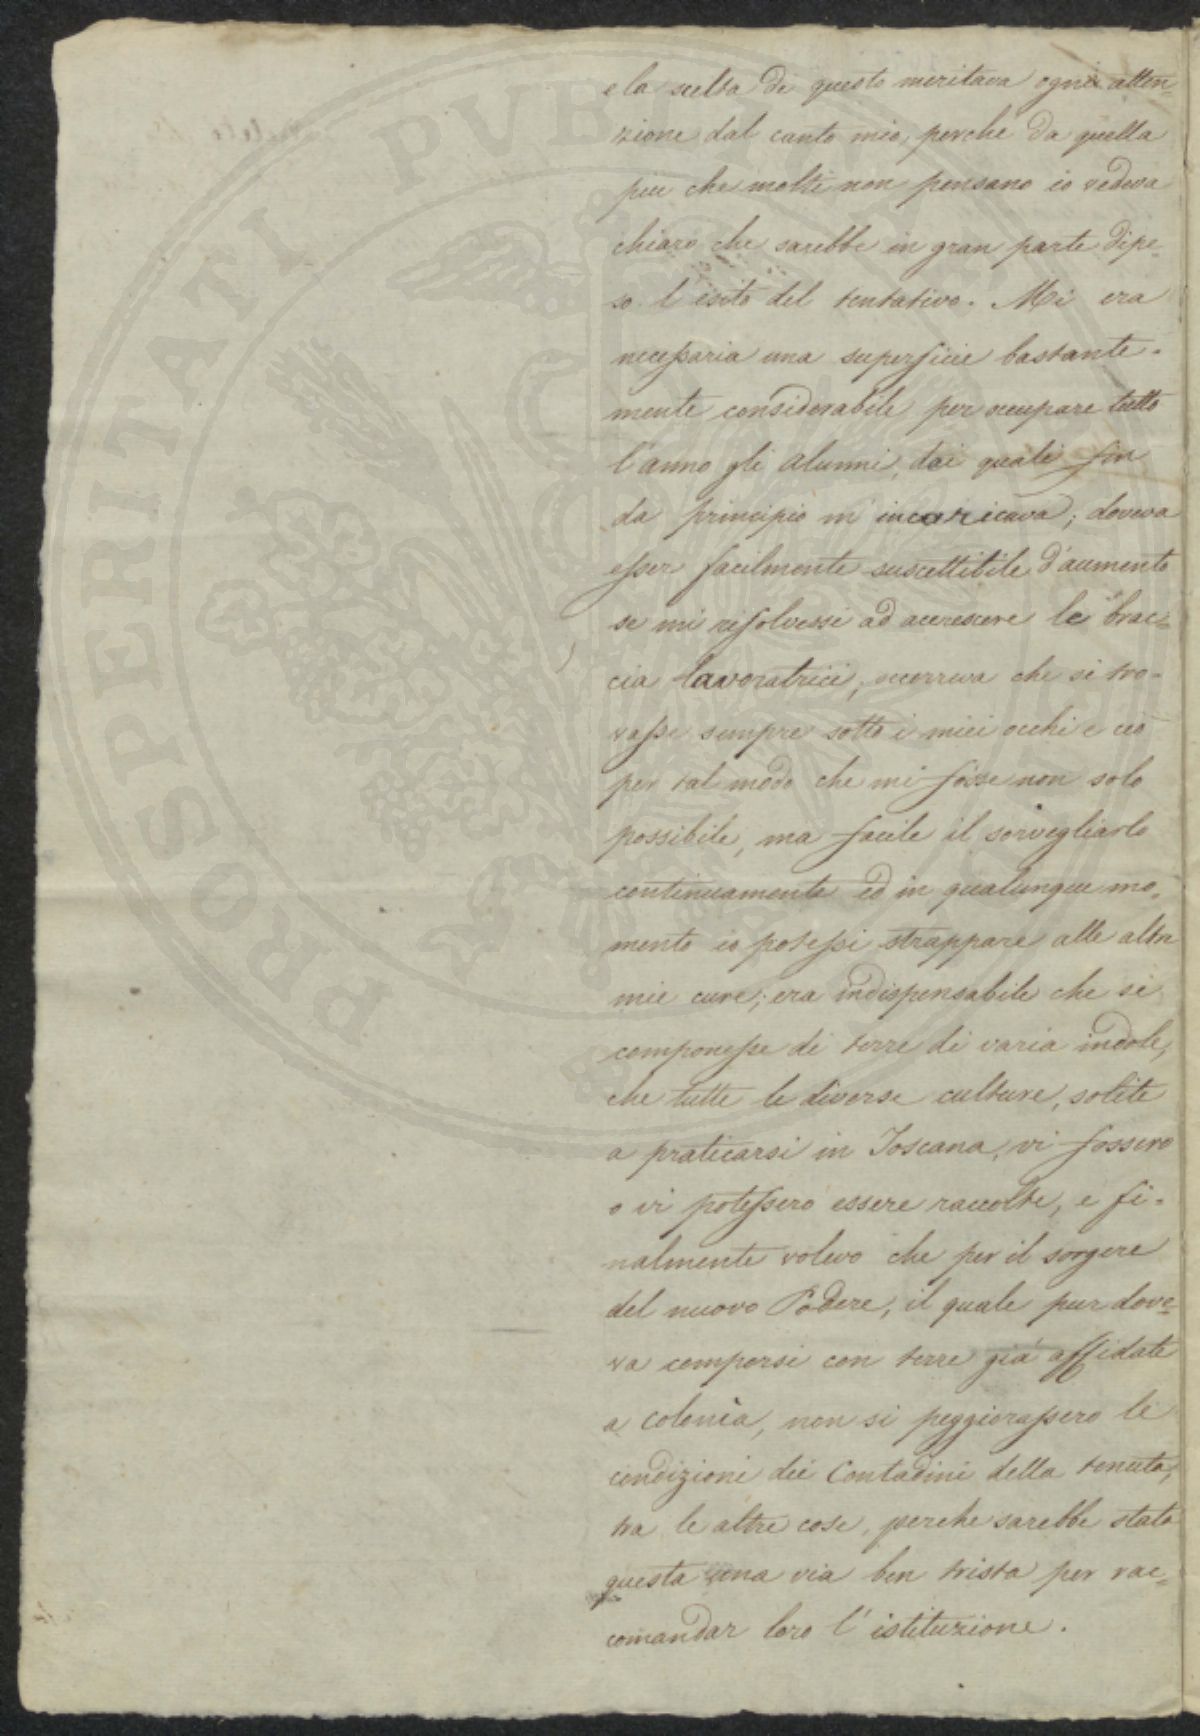 e la scelta di questo meritava ogni atten=
zione dal canto mio, perche da quella
piu che molti non pensano io vedeva
chiaro che sarebbe in gran parte dipe-
so l'esito del tentativo. Mi era
necessaria una superficie bastante=
mente considerabile per occupare tutto
l'anno gli alunni, dei quali fin
da principio m'incaricava; doveva
esser facilmente suscettibile d'aumento
se mi risolvessi ad accrescere le brac=
cia lavoratrici, occorreva che si tro-
vasse sempre sotto i miei occhi e ciò
per tal modo che mi fosse non solo
possibile, ma facile il sorvegliarlo
continuamente ed in qualunque mo-
mento io potessi strappare alle altre
mie cure; era indispensabile che si
componesse di terre di varia indole,
che tutte le diverse culture, solite
a praticarsi in Toscana, vi fossero
o vi potessero essere raccolte, e fi-
nalmente volevo che per il sorgere
del nuovo Podere, il quale pur dove=
va comporsi con terre già affidate
a colonia, non si peggiorassero le
condizioni dei Contadini della tenuta,
tra le altre cose, perche sarebbe stata
questa una via ben trista per rac=
comandar loro l'istituzione.
PROSPERITATI PVBLICAE